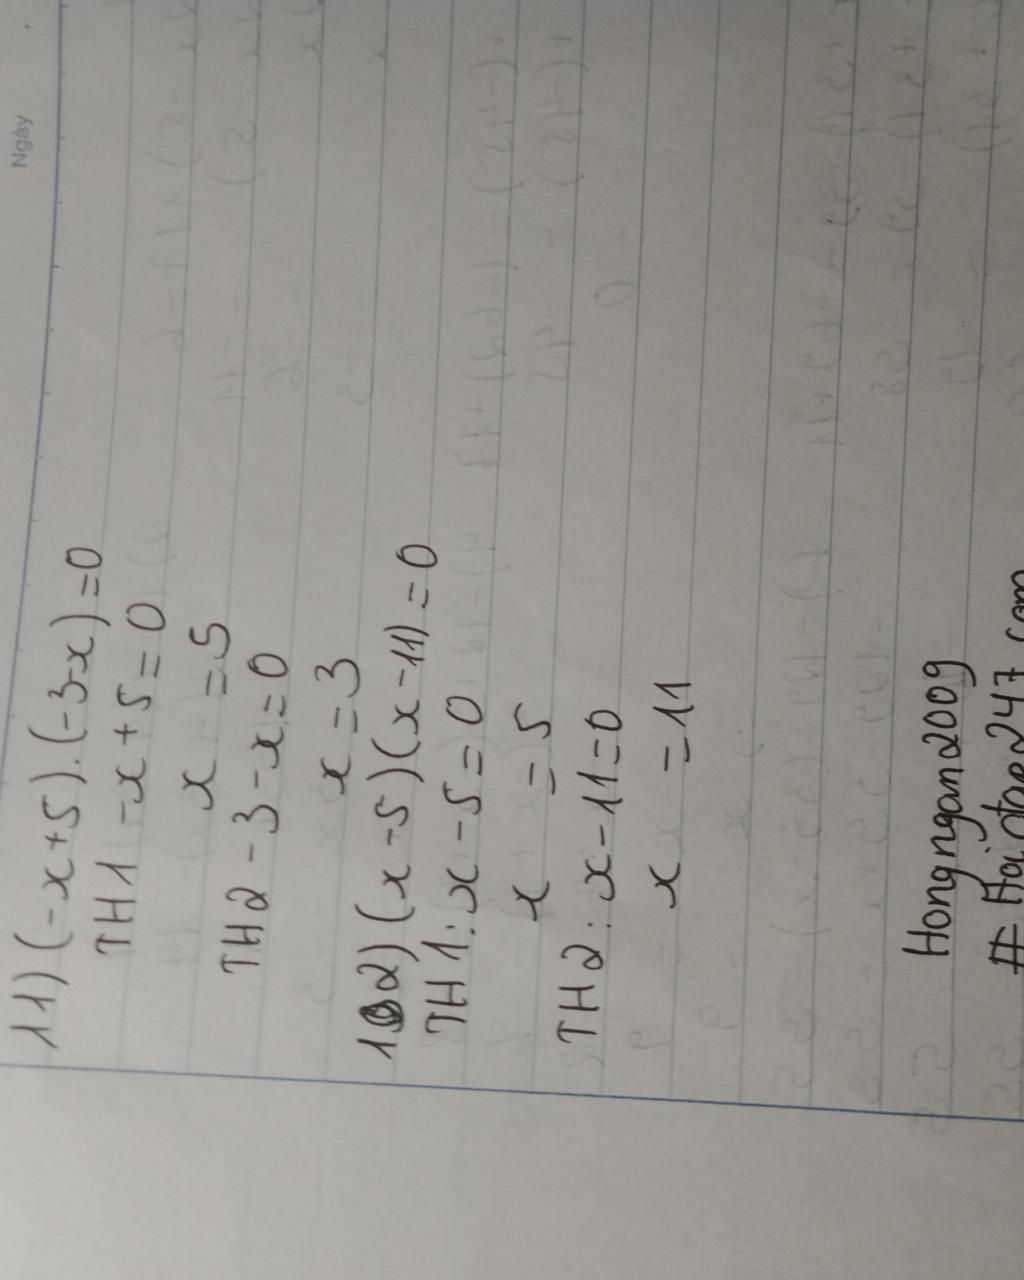 Ngày
11) (-x+5).(-3-x)=0
TH1 -x+5=0
x =5
TH2 -3-x=0
x=3
12) (x-5)(x-11)=0
TH1: x-5=0
x=5
TH2: x-11=0
x =11
Hongngan2009